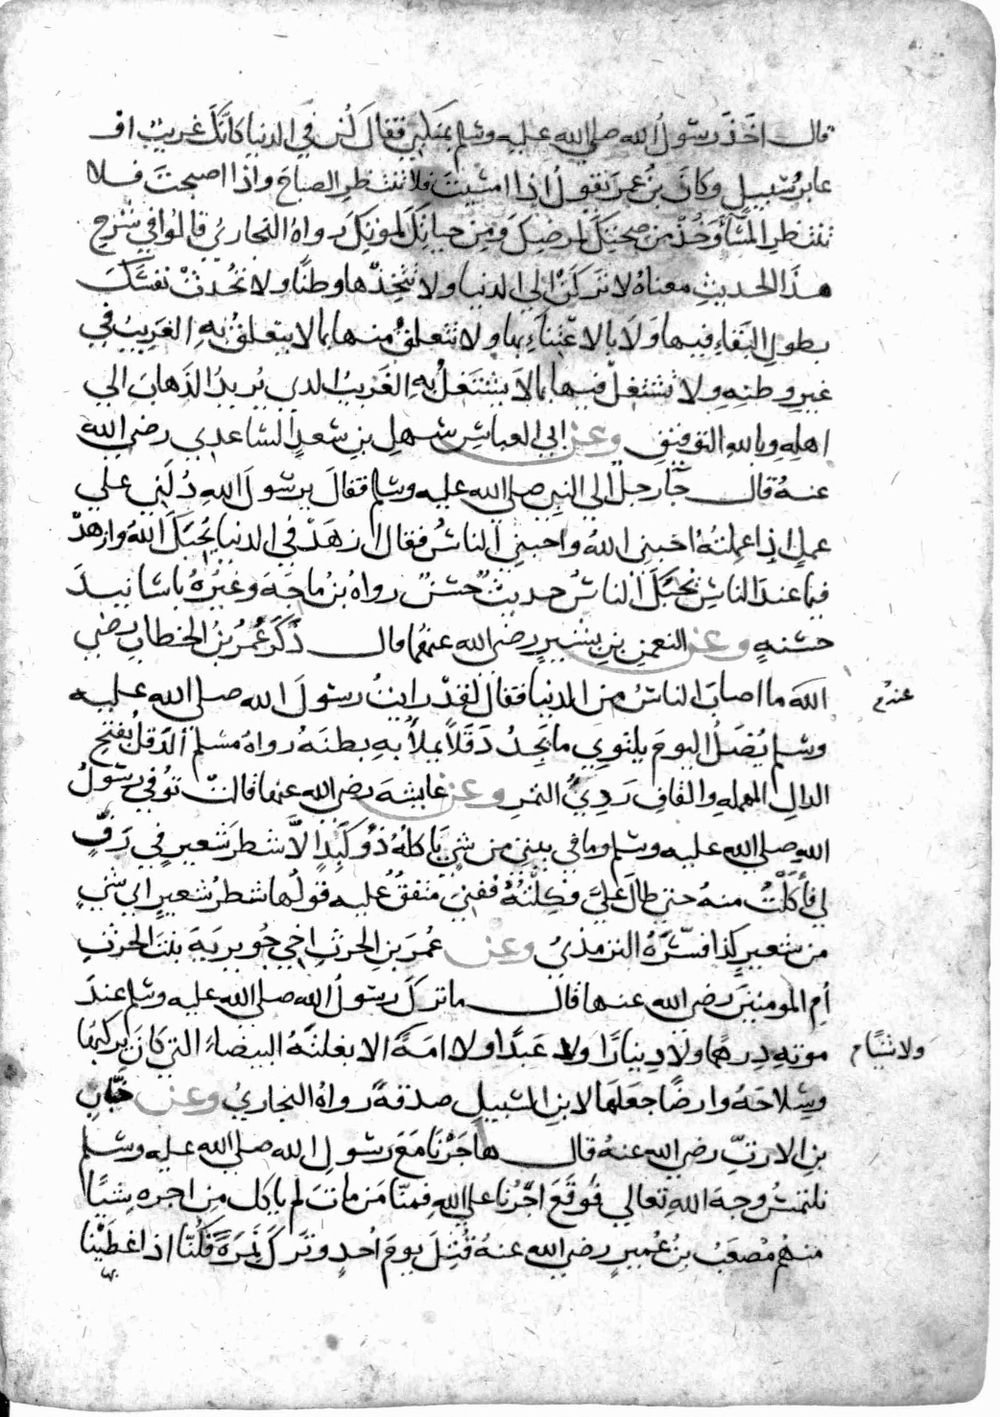 قال اخذ رسول الله صلى الله عليه وسلم بمنكبي فقال كن في الدنيا كانك غريب او
عابر سبيل وكان بن عمر يقول اذا امسيت فلا تنتظر الصباح واذا اصبحت فلا
تنتظر المسا وخذ من صحتك لمرضك ومن حياتك لموتك رواه البخاري قالوا في شرح
هذا الحديث معناه لا تركن الي الدنيا ولا تتخذها وطنا ولا تحدث نفسك
بطول البقاء فيها ولا بالاعتناء بها ولا تتعلق منها بما لا يتعلق به الغريب في
غير وطنه ولا تشتغل فيها بما لا يشتغل به الغريب الذي يريد الذهاب الي
اهله وبالله التوفيق وعن ابي العباس سهل بن سعد الساعدي رضي الله
عنه قال جا رجل الي النبي صلى الله عليه وسلم فقال يرسول الله دلني علي
عمل اذا عملته احبني الله واحبني الناس فقال ازهد في الدنيا يحبك الله وازهد
فيما عند الناس يحبك الناس حديث حسن رواه بن ماجه وغيره باسانيد
حسنه وعن النعمن بن بشير رضي الله عنهما قال ذكر عمر بن الخطاب رضي
الله ما اصاب الناس من الدنيا فقال لقد رايت رسول الله صلى الله عليه
عنه م
وسلم يظل اليوم يلتوي ما يجد دقلا يملا به بطنه رواه مسلم الدقل بفتح
الدال المهمله والقاف ردي التمر وعن عايشه رضي الله عنها قالت توفي رسول
الله صلى الله عليه وسلم وما في بيتي من شي ياكله ذو كبد الا شطر شعير في رف
لي فاكلت منه حتي طال علي فكلته ففني متفق عليه قولها شطر شعير اي شي
من شعير كذا فسره الترمذي وعن عمر بن الحرث اخي جويريه بنت الحرث
ام المومنين رضي الله عنها قال ما ترك رسول الله صلى الله عليه وسلم عند
موته درهما ولا دينارا ولا عبدا ولا امة الا بغلته البيضاء التي كان يركبها
ولا شيا م
وسلاحه وارضا جعلها لابن السبيل صدقة رواه البخاري وعن خباب
بن الارت رضي الله عنه قال هاجرنا مع رسول الله صلى الله عليه وسلم
نلتمس وجه الله تعالي فوقع اجرنا علي الله فمنا من مات لم ياكل من اجره شيا
منهم مصعب بن عمير رضي الله عنه قتل يوم احد وترك نمرة فكنا اذا غطينا
بها